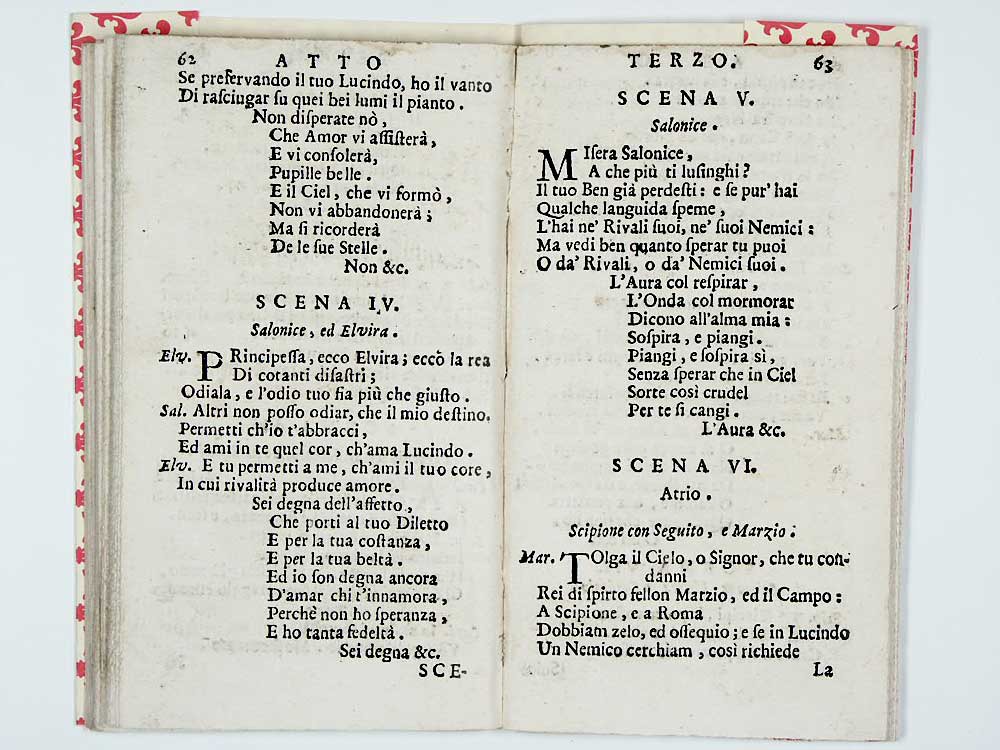 62 ATTO
Se preſervando il tuo Lucindo, ho il vanto
Di raſciugar ſu quei bei lumi il pianto.
Non diſperate nò,
Che Amor vi aſſiſterà,
E vi conſolerà,
Pupille belle.
E il Ciel, che vi formò,
Non vi abbandonerà;
Ma ſi ricorderà
De le ſue Stelle.
Non &c.
SCENA IV.
Salonice, ed Elvira.
Elv. PRincipeſſa, ecco Elvira; eccò la rea
Di cotanti diſaſtri;
Odiala, e l'odio tuo fia più che giuſto.
Sal. Altri non poſſo odiar, che il mio deſtino.
Permetti ch'io t'abbracci,
Ed ami in te quel cor, ch'ama Lucindo.
Elv. E tu permetti a me, ch'ami il tuo core,
In cui rivalità produce amore.
Sei degna dell'affetto,
Che porti al tuo Diletto
E per la tua coſtanza,
E per la tua beltà.
Ed io ſon degna ancora
D'amar chi t'innamora,
Perchè non ho ſperanza,
E ho tanta fedeltà.
Sei degna &c.
SCE-
TERZO. 63
SCENA V.
Salonice.
MIſera Salonice,
A che più ti luſinghi?
Il tuo Ben già perdeſti: e ſe pur' hai
Qualche languida ſpeme,
L'hai ne' Rivali ſuoi, ne' ſuoi Nemici:
Ma vedi ben quanto ſperar tu puoi
O da' Rivali, o da' Nemici ſuoi.
L'Aura col reſpirar,
L'Onda col mormorar
Dicono all'alma mia:
Soſpira, e piangi.
Piangi, e ſoſpira sì,
Senza ſperar che in Ciel
Sorte così crudel
Per te ſi cangi.
L'Aura &c.
SCENA VI.
Atrio.
Scipione con Seguito, e Marzio.
Mar. TOlga il Cielo, o Signor, che tu con-
danni
Rei di ſpirto fellon Marzio, ed il Campo:
A Scipione, e a Roma
Dobbiam zelo, ed oſſequio; e ſe in Lucindo
Un Nemico cerchiam, così richiede
La